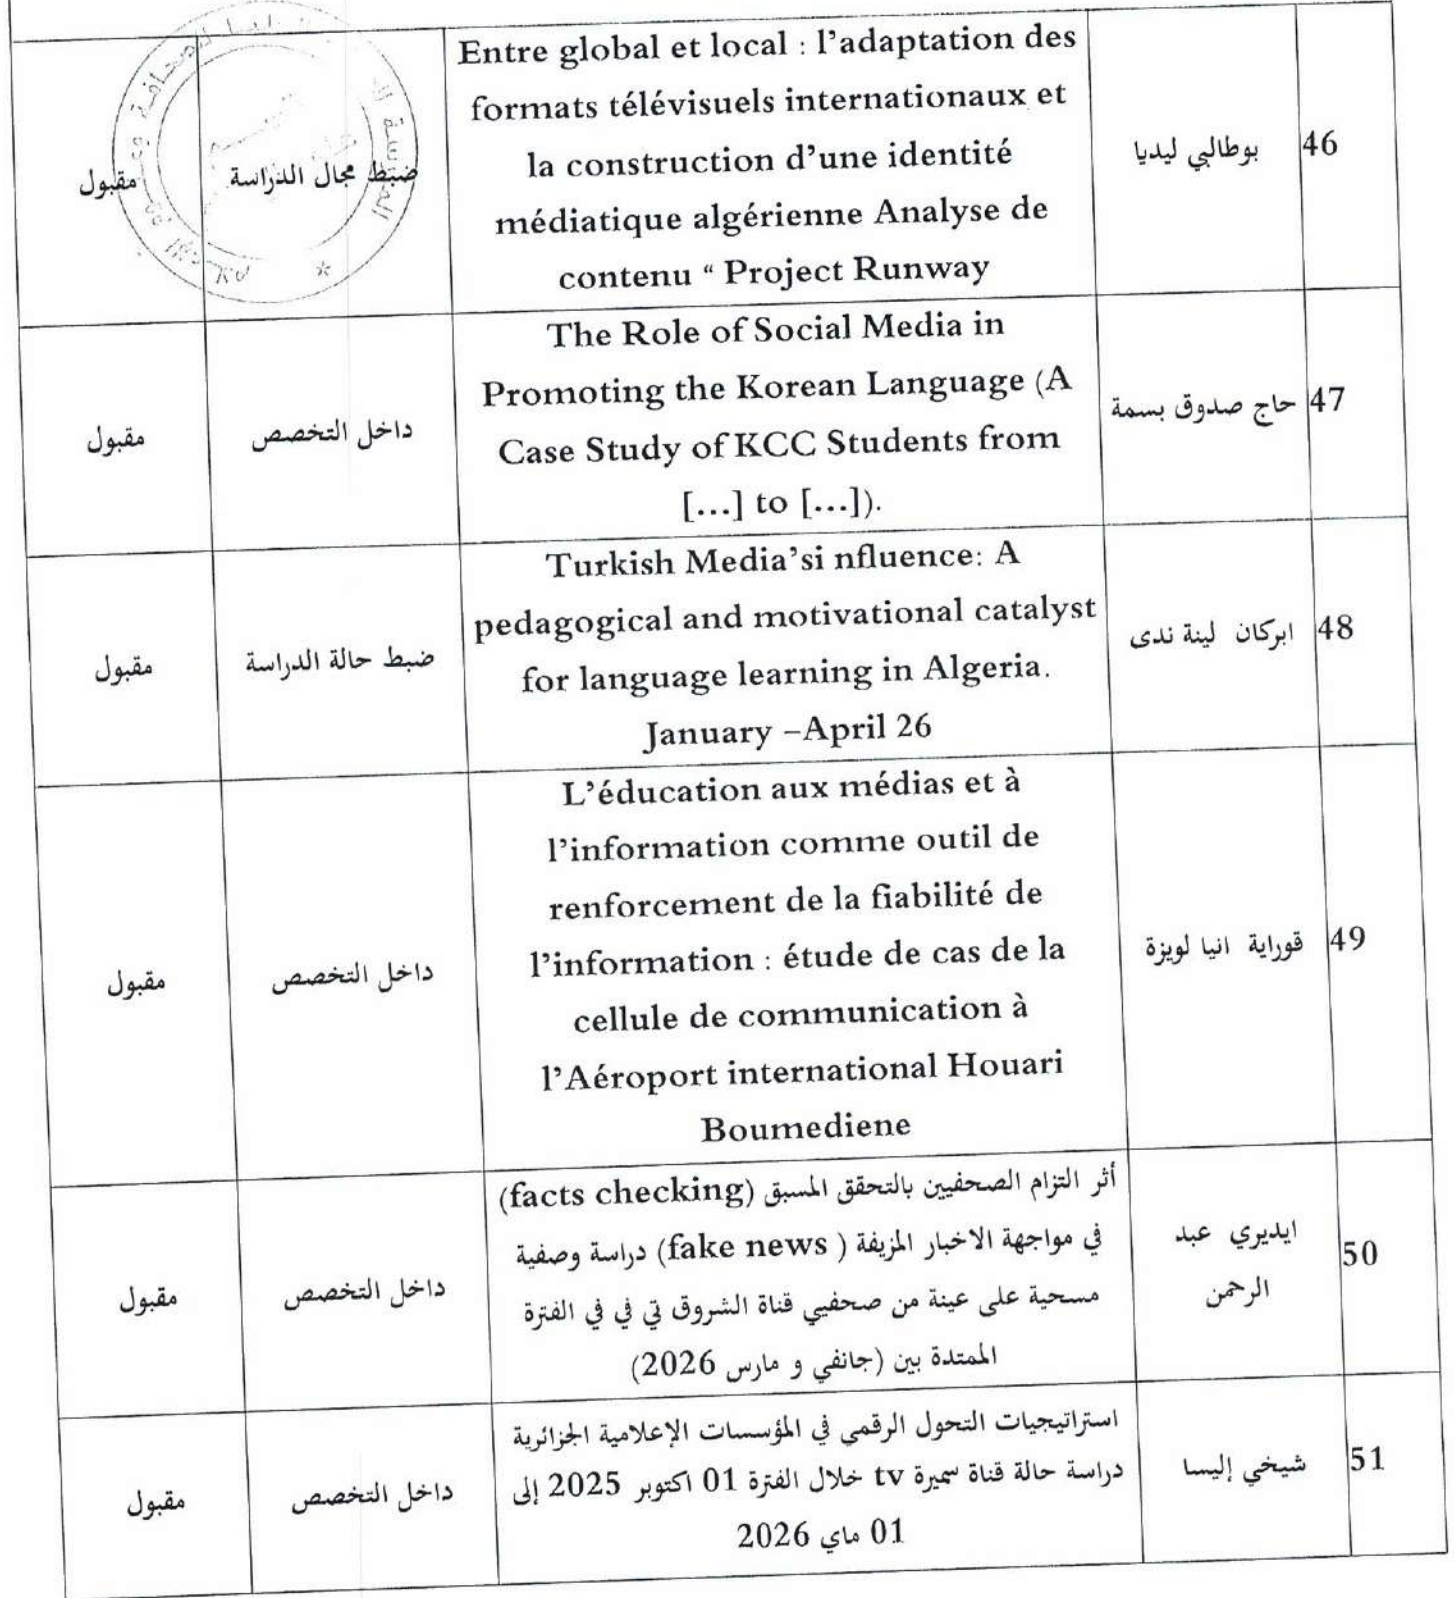 46
بوطالبي ليديا
Entre global et local : l’adaptation des
formats télévisuels internationaux et
la construction d’une identité
médiatique algérienne Analyse de
contenu “ Project Runway
ضبط مجال الدراسة
مقبول
47
حاج صدوق بسمة
The Role of Social Media in
Promoting the Korean Language (A
Case Study of KCC Students from
[...] to [...]).
داخل التخصص
مقبول
48
ابركان لينة ندى
Turkish Media’si nfluence: A
pedagogical and motivational catalyst
for language learning in Algeria.
January –April 26
ضبط حالة الدراسة
مقبول
49
قوراية انيا لويزة
L’éducation aux médias et à
l’information comme outil de
renforcement de la fiabilité de
l’information : étude de cas de la
cellule de communication à
l’Aéroport international Houari
Boumediene
داخل التخصص
مقبول
50
ايديري عبد
الرحمن
أثر التزام الصحفيين بالتحقق المسبق (facts checking)
في مواجهة الاخبار المزيفة ( fake news) دراسة وصفية
مسحية على عينة من صحفيي قناة الشروق تي في في الفترة
الممتدة بين (جانفي و مارس 2026)
داخل التخصص
مقبول
51
شيخي إليسا
استراتيجيات التحول الرقمي في المؤسسات الإعلامية الجزائرية
دراسة حالة قناة سميرة tv خلال الفترة 01 اكتوبر 2025 إلى
01 ماي 2026
داخل التخصص
مقبول